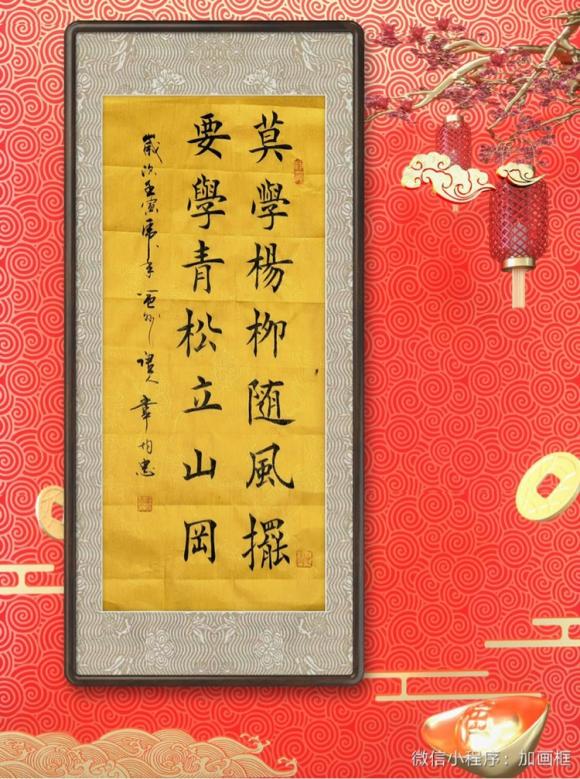 莫學楊柳随風擺
要學青松立山岡
歲次壬寅虎年
韋均忠
微信小程序：加画框